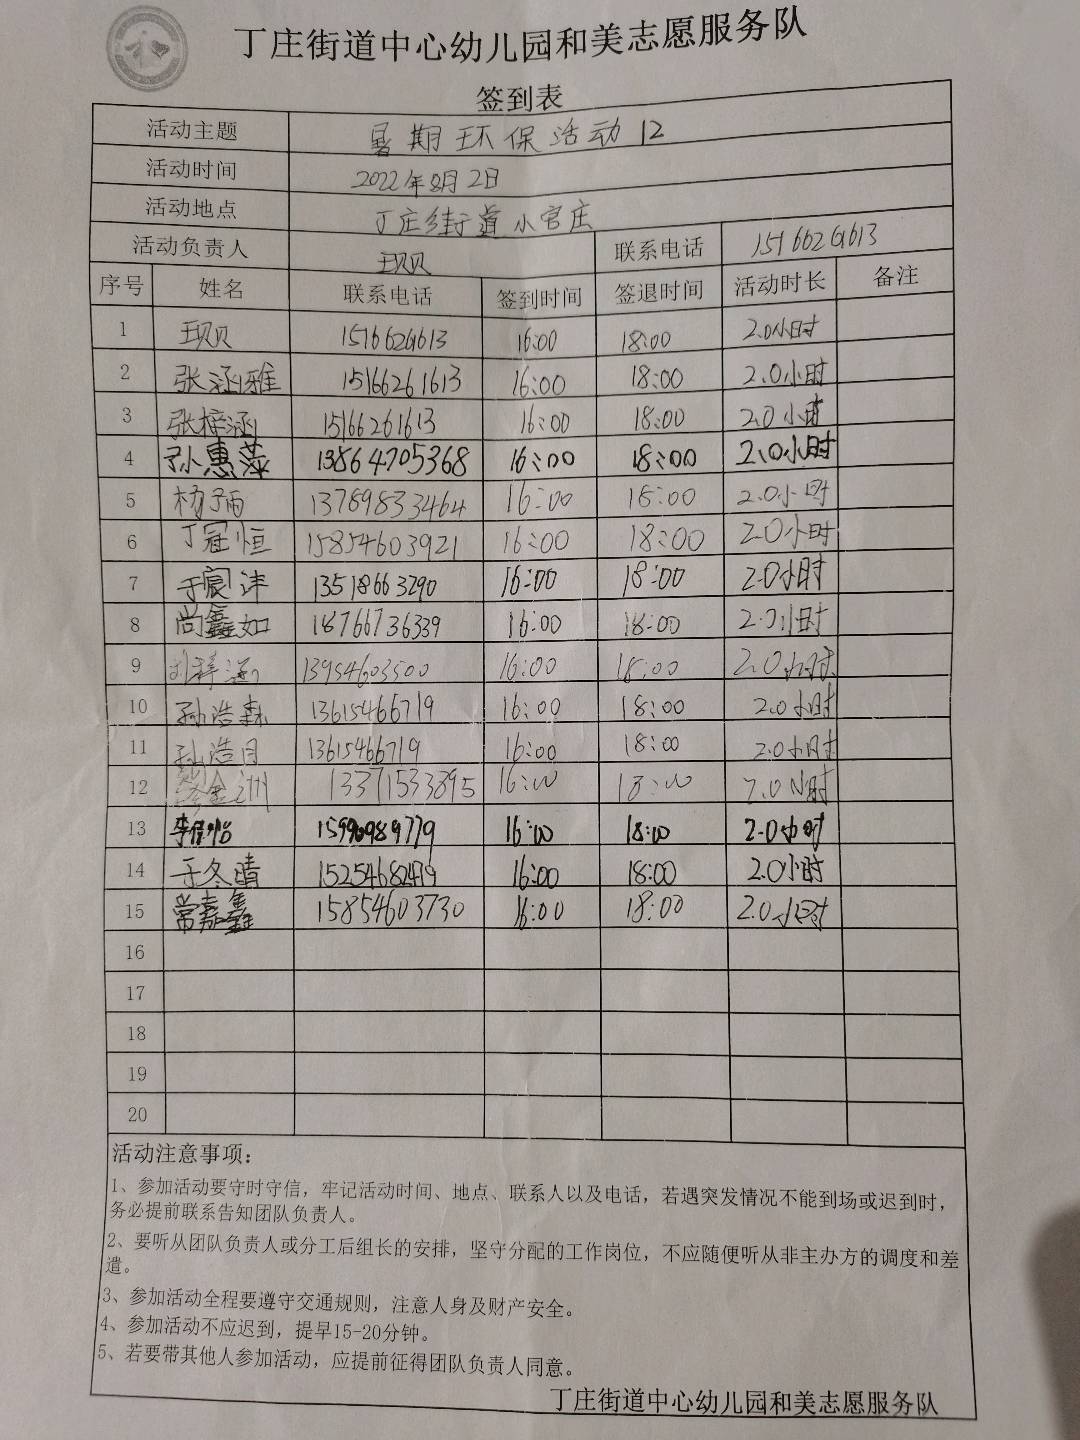 丁庄街道中心幼儿园和美志愿服务队
签到表
活动主题 暑期环保活动12
活动时间 2022年8月2日
活动地点 丁庄街道小官庄
活动负责人 王贝贝 联系电话 15166261613
序号 姓名 联系电话 签到时间 签退时间 活动时长 备注
1 王贝贝 15166261613 16:00 18:00 2.0小时
2 张涵雅 15166261613 16:00 18:00 2.0小时
3 张梓涵 15166261613 16:00 18:00 2.0小时
4 孙惠萍 13864705368 16:00 18:00 2.0小时
5 杨子雨 13789833464 16:00 18:00 2.0小时
6 丁冠恒 15854603921 16:00 18:00 2.0小时
7 于宸沣 13518663290 16:00 18:00 2.0小时
8 尚鑫如 18766736339 16:00 18:00 2.0小时
9 刘梓涵 13954603500 16:00 18:00 2.0小时
10 孙浩森 13615466719 16:00 18:00 2.0小时
11 孙浩月 13615466719 16:00 18:00 2.0小时
12 13371533895 16:00 18:00 2.0小时
13 16:00 18:00 2.0小时
14 于冬晴 15254682419 16:00 18:00 2.0小时
15 常嘉鑫 15854603730 16:00 18:00 2.0小时
16
17
18
19
20
活动注意事项：
1、参加活动要守时守信，牢记活动时间、地点、联系人以及电话，若遇突发情况不能到场或迟到时，
务必提前联系告知团队负责人。
2、要听从团队负责人或分工后组长的安排，坚守分配的工作岗位，不应随便听从非主办方的调度和差
遣。
3、参加活动全程要遵守交通规则，注意人身及财产安全。
4、参加活动不应迟到，提早15-20分钟。
5、若要带其他人参加活动，应提前征得团队负责人同意。
丁庄街道中心幼儿园和美志愿服务队